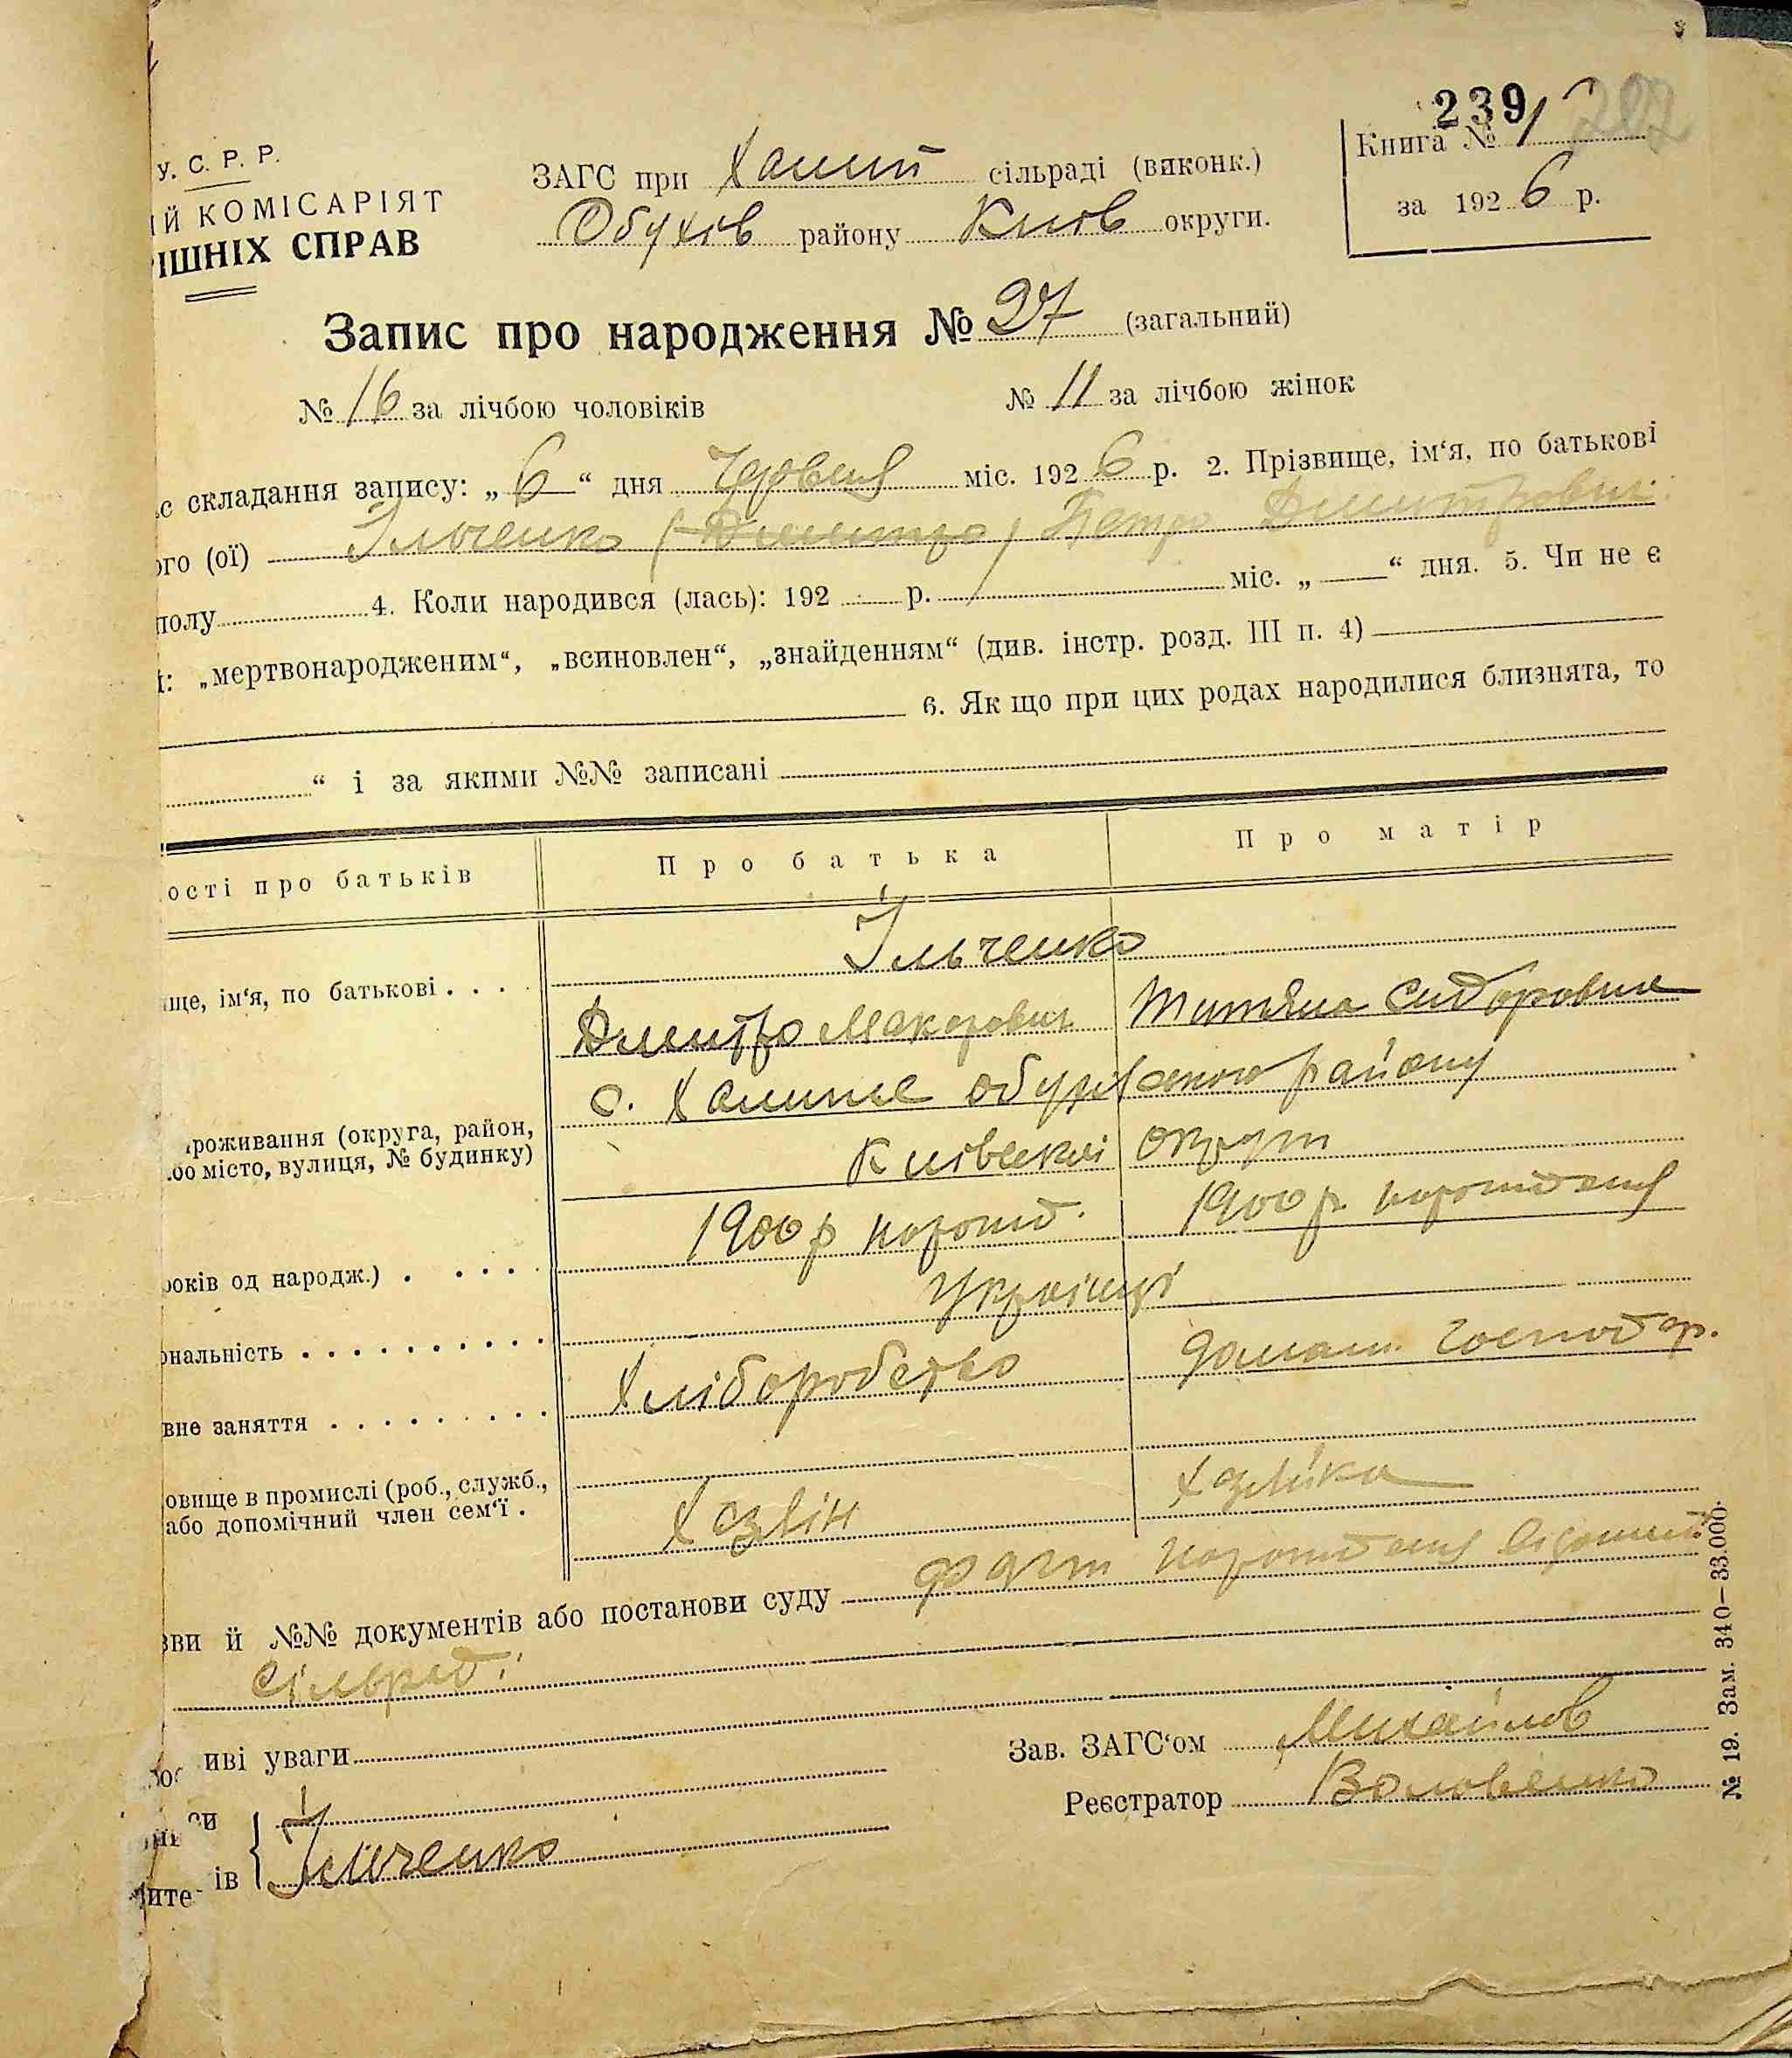 239
У. С. Р. Р.
ИЙ КОМІСАРІЯТ
РІШНІХ СПРАВ
ЗАГС при Халип сільраді (виконк.)
Обухів району Київ округи.
Книга № 1
за 1926 р.
Запис про народження № 27 (загальний)
№ 16 за лічбою чоловіків
№ 11 за лічбою жінок
ас складання запису: „6“ дня Червня міс. 1926 р. 2. Прізвище, ім'я, по батькові
ого (ої) Ільченко (Дмитро) Петро Дмитрович
полу 4. Коли народився (лась): 192 р. міс. „ “ дня. 5. Чи не є
і: „мертвонародженим“, „всиновлен“, „знайденням“ (див. інстр. розд. III п. 4)
6. Як що при цих родах народилися близнята, то
“ і за якими №№ записані
ості про батьків
Про батька
Про матір
Ільченко
ище, ім'я, по батькові . . . .
Дмитро Макорович
Титяна Сидоровна
с. Халипе обухівського району
роживання (округа, район,
бо місто, вулиця, № будинку)
Київської округи
1900 р нарожд.
1900 р. нарождення
років од народж.) . . . . .
Українці
ональність . . . . . . . . . .
Хліборобство
Домаш. господар.
вне заняття . . . . . . . . .
овище в промислі (роб., служб.,
або допомічний член сем'ї .
Хазяїн
Хазяйка
зви й №№ документів або постанови суду факт нарождення відомий
Сільраді
иві уваги
Зав. ЗАГС'ом Михайлов
Реєстратор
си
ів
Ільченко
ите-
№ 19. Зам. 340—33.000.